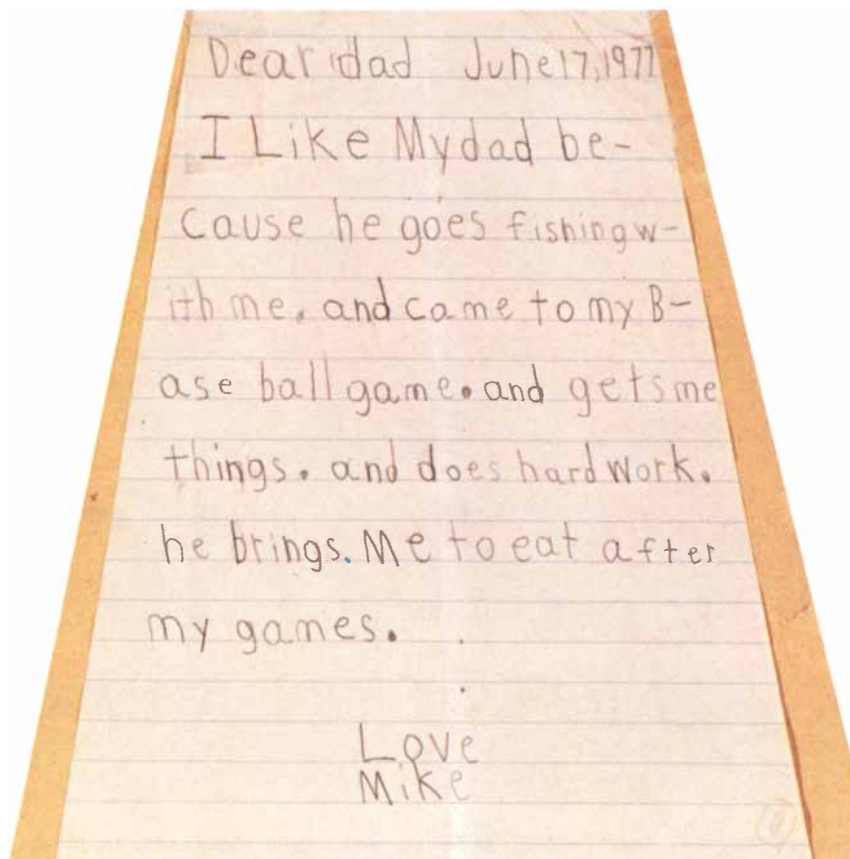 Dear dad June 17, 1977
I Like My dad be-
cause he goes fishing w-
ith me. and came to my B-
ase ball game. and gets me
things. and does hard work.
he brings. Me to eat after
my games.
Love
Mike